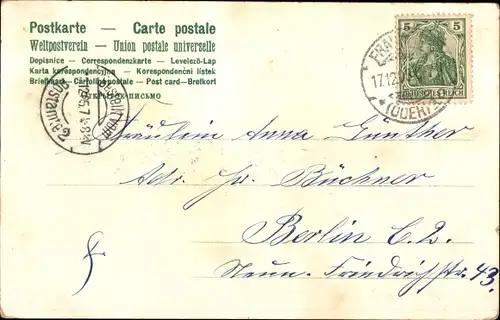 Postkarte — Carte postale
Weltpostverein — Union postale universelle
Dopisnice — Correspondenzkarte — Levelező-Lap
Karta korespondencyjna — Korespondenční lístek
Briefkaart — Cartolina postale — Post card — Brefkort
5 5
DEUTSCHES REICH
17.12
(ODER)
Fräulein Anna Günther
Adr. Hr. Büchner
Berlin C. 2.
Neue Friedrichstr. 43.